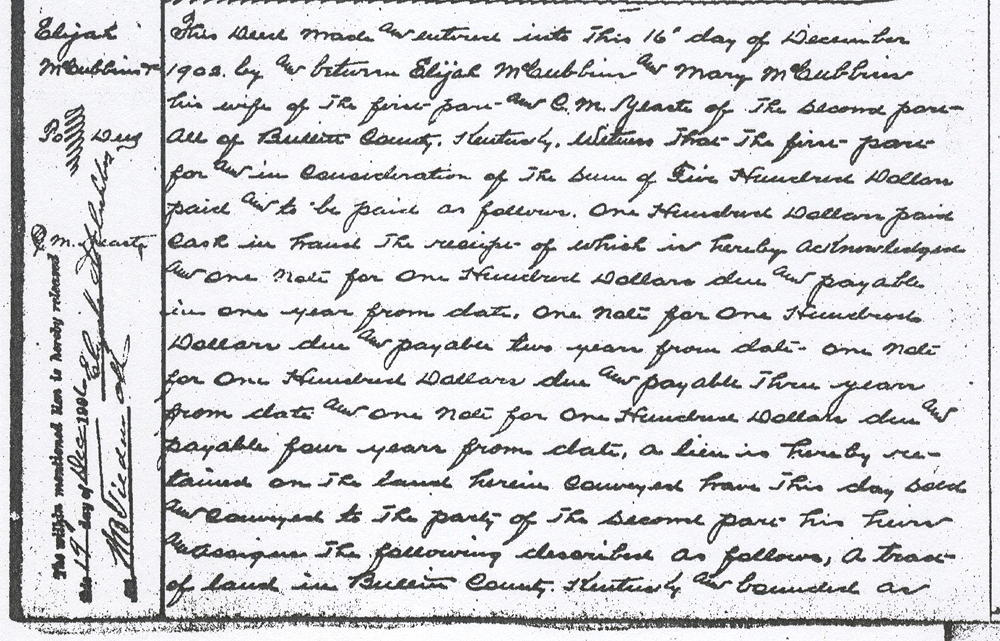 Elijah
McCubbins &c
To Deed
C. M. Yearts
This Deed made and entered into this 16" day of December
1902. by and between Elijah McCubbins and Mary McCubbins
his wife of the first part and C. M. Yearts of the second part
All of Bullitt County, Kentucky, Witness that the first part
for and in consideration of the sum of Five Hundred Dollars
paid and to be paid as follows. One Hundred Dollars paid
Cash in hand the receipt of which is hereby acknowledged
and one note for One Hundred Dollars due and payable
in one year from date, One note for One Hundred
Dollars due and payable two years from date one note
for One Hundred Dollars due and payable three years
from date and one note for One Hundred Dollars due and
payable four years from date, a lien is hereby re-
tained on the land herein conveyed have this day sold
and conveyed to the party of the second part his heirs
and assigns the following described as follows, A tract
of land in Bullitt County, Kentucky and bounded as
The within mentioned lien is hereby released
this 19" day of Dec 1906 Elijah McCubbins